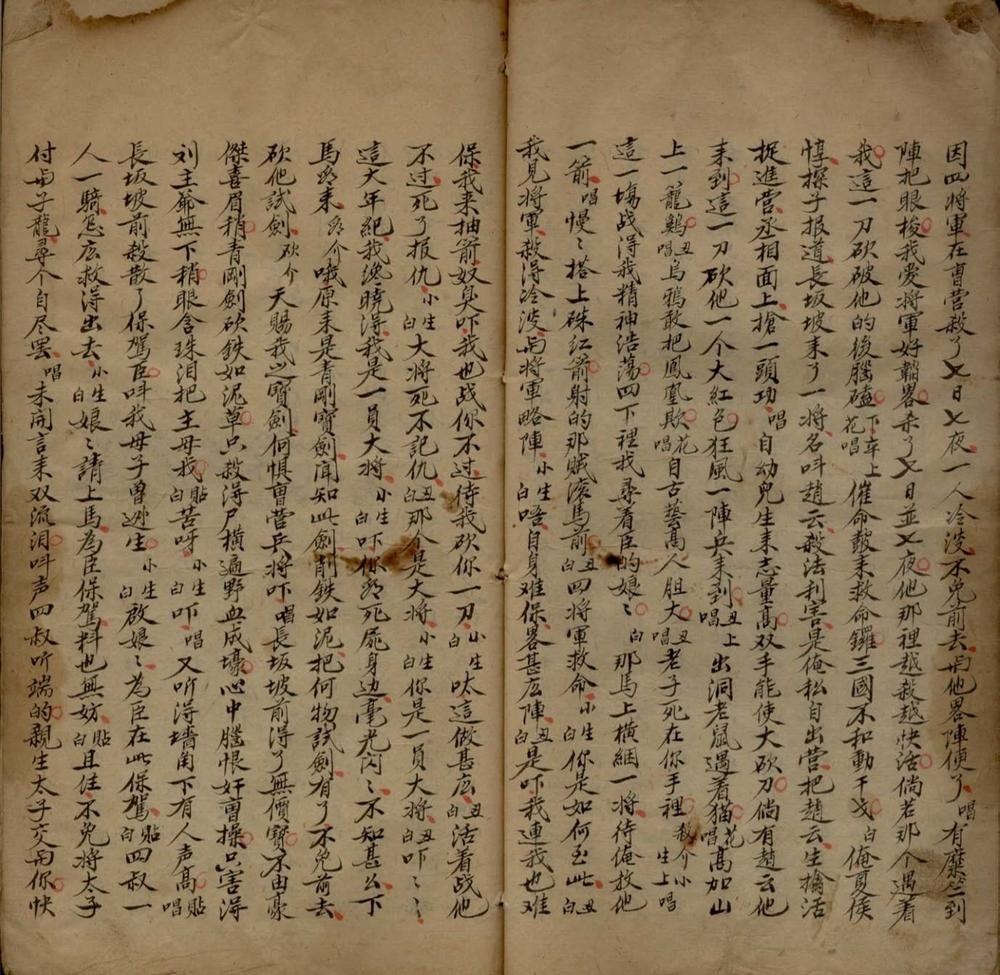 因四將軍在曹营殺了乂日乂夜一人冷淡不免前去与他畧陣便了唱有糜竺到
陣把眼梭我爱將軍好韜畧杀了乂日並乂夜他那裡越殺越快活倘若那个遇着
我這一刀砍破他的後腦磕下卒上花唱催命鼓来救命鑼三國不和動干戈白俺夏侯
惇操子报道長坂坡来了一将名呌趙云殺法利害是俺私自出营把趙云生擒活
捉進营丞相面上搶一頭功唱自幼兒生来志量髙双手能使大砍刀倘有趙云他
来到這一刀砍他一个大紅色狂風一陣兵来到丑上唱出洞老鼠遇着猫花唱髙加山
上一籠鷄丑唱烏鴉敢把鳳凰欺花唱自古藝髙人胆大丑唱老子死在你手裡殺介小生上唱
這一塲战得我精神浩蕩四下裡我尋着臣的娘〻白那馬上横綑一将待俺放他
一箭唱慢〻搭上硃紅箭射的那贼滚馬前丑白四將軍救命小生白你是如何至此丑白
我見将軍殺得冷淡与將軍略陣小生白唔自身难保畧甚庅陣丑白是吓我連我也难
保我来抽箭奴臭吓我也战你不过待我砍你一刀小生白呔這做甚庅丑白活着战他
不过死了报仇小生白大将死不記仇丑白那个是大将小生白你是一員大将丑白吓〻〻
這大年紀我纔曉得我是一員大将小生白吓你那死屍身边毫光闪〻不知甚么下
馬ね来ね介哦原来是青剛寳劍闻知此劍削鉄如泥把何物試劍有了不免前去
砍他試劍砍介天賜我这寳劍何惧曹营兵将吓唱長坂坡前得了無價寳不由豪
傑喜眉稍青剛劍砍鉄如泥草只殺得尸横遍野血成壕心中腦恨奸曹操只害得
刘主爺無下稍眼含珠泪把主母找貼白苦呀小生白吓唱又听得墙角下有人声髙貼唱
長坂坡前殺散了保駕臣呌我母子曾逊生小生白啟娘〻為臣在此保駕貼白四叔一
人一騎怎庅救得出去小生白娘〻請上馬為臣保駕料也無妨貼白且住不免将太子
付与子龍尋个自尽罢唱未開言来双流泪呌声四叔听端的親生太子交与你快